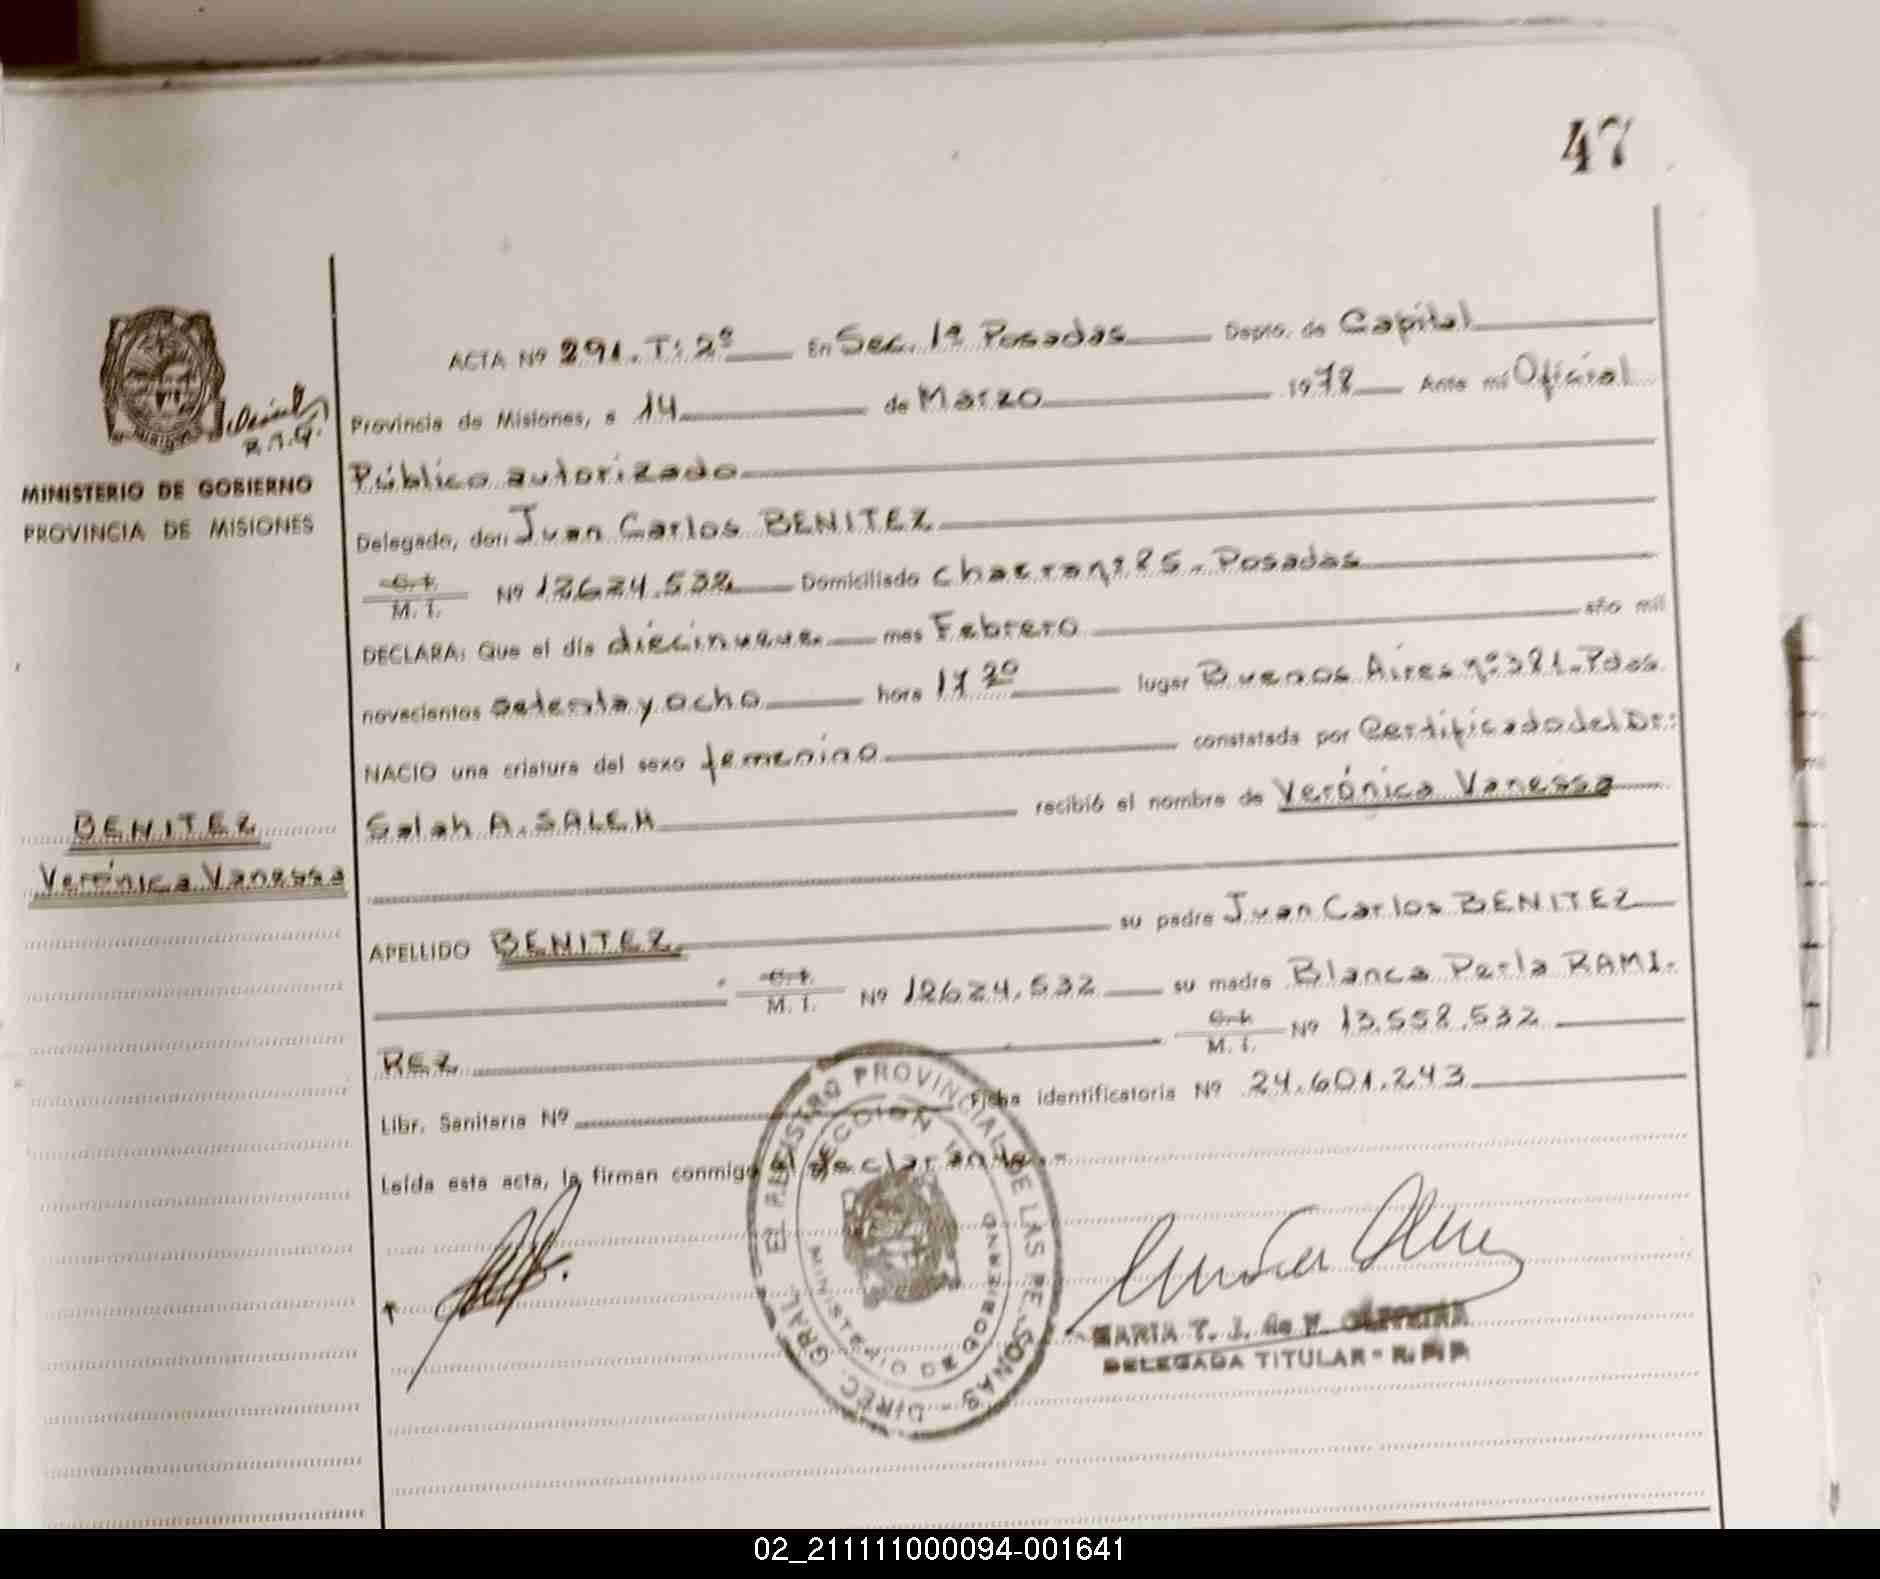 47
ACTA Nº 291. T: 2º En Sec. 1ª Posadas Depto. de Capital
Provincia de Misiones, a 14 de Marzo 1978 Ante mí Oficial
Público autorizado
MINISTERIO DE GOBIERNO
PROVINCIA DE MISIONES
Delegado, don Juan Carlos BENITEZ
C. I.
M. I. Nº 12624.532 Domiciliado chacra nº 85. Posadas
DECLARA: Que el día diecinueve mes Febrero año mil
novecientos setenta y ocho hora 17 30 lugar Buenos Aires nº 381. Pdas.
NACIO una criatura del sexo femenino constatada por Certificado del Dr:
Salah A. SALEH recibió el nombre de Verónica Vanessa
BENITEZ
Verónica Vanessa
APELLIDO BENITEZ su padre Juan Carlos BENITEZ
C. I.
M. I. Nº 12624.532 su madre Blanca Perla RAMI-
REZ C. I.
M. I. Nº 13.558.532
Libr. Sanitaria Nº Ficha identificatoria Nº 24.601.243
Leída esta acta, la firman conmigo el declarante.-
DIREC. GRAL. EL REGISTRO PROVINCIAL DE LAS PERSONAS
SECCION
MINISTERIO DE GOBIERNO
MARIA T. J. de V. OLIVEIRA
DELEGADA TITULAR - R.P.P.
02_211111000094-001641